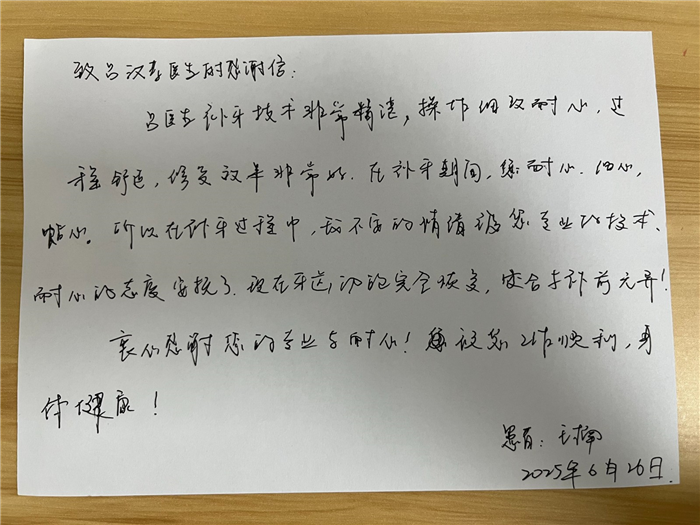 致吕汉春医生的感谢信：
吕医生补牙技术非常精湛，操作细致耐心，过
程舒适，修复效果非常好。在补牙期间，您耐心、细心、
贴心。所以在补牙过程中，我不安的情绪被您专业的技术、
耐心的态度安抚了。现在牙齿功能完全恢复，咬合与补前无异！
衷心感谢您的专业与耐心！祝您工作顺利，身
体健康！
患者：王
2025年6月26日.